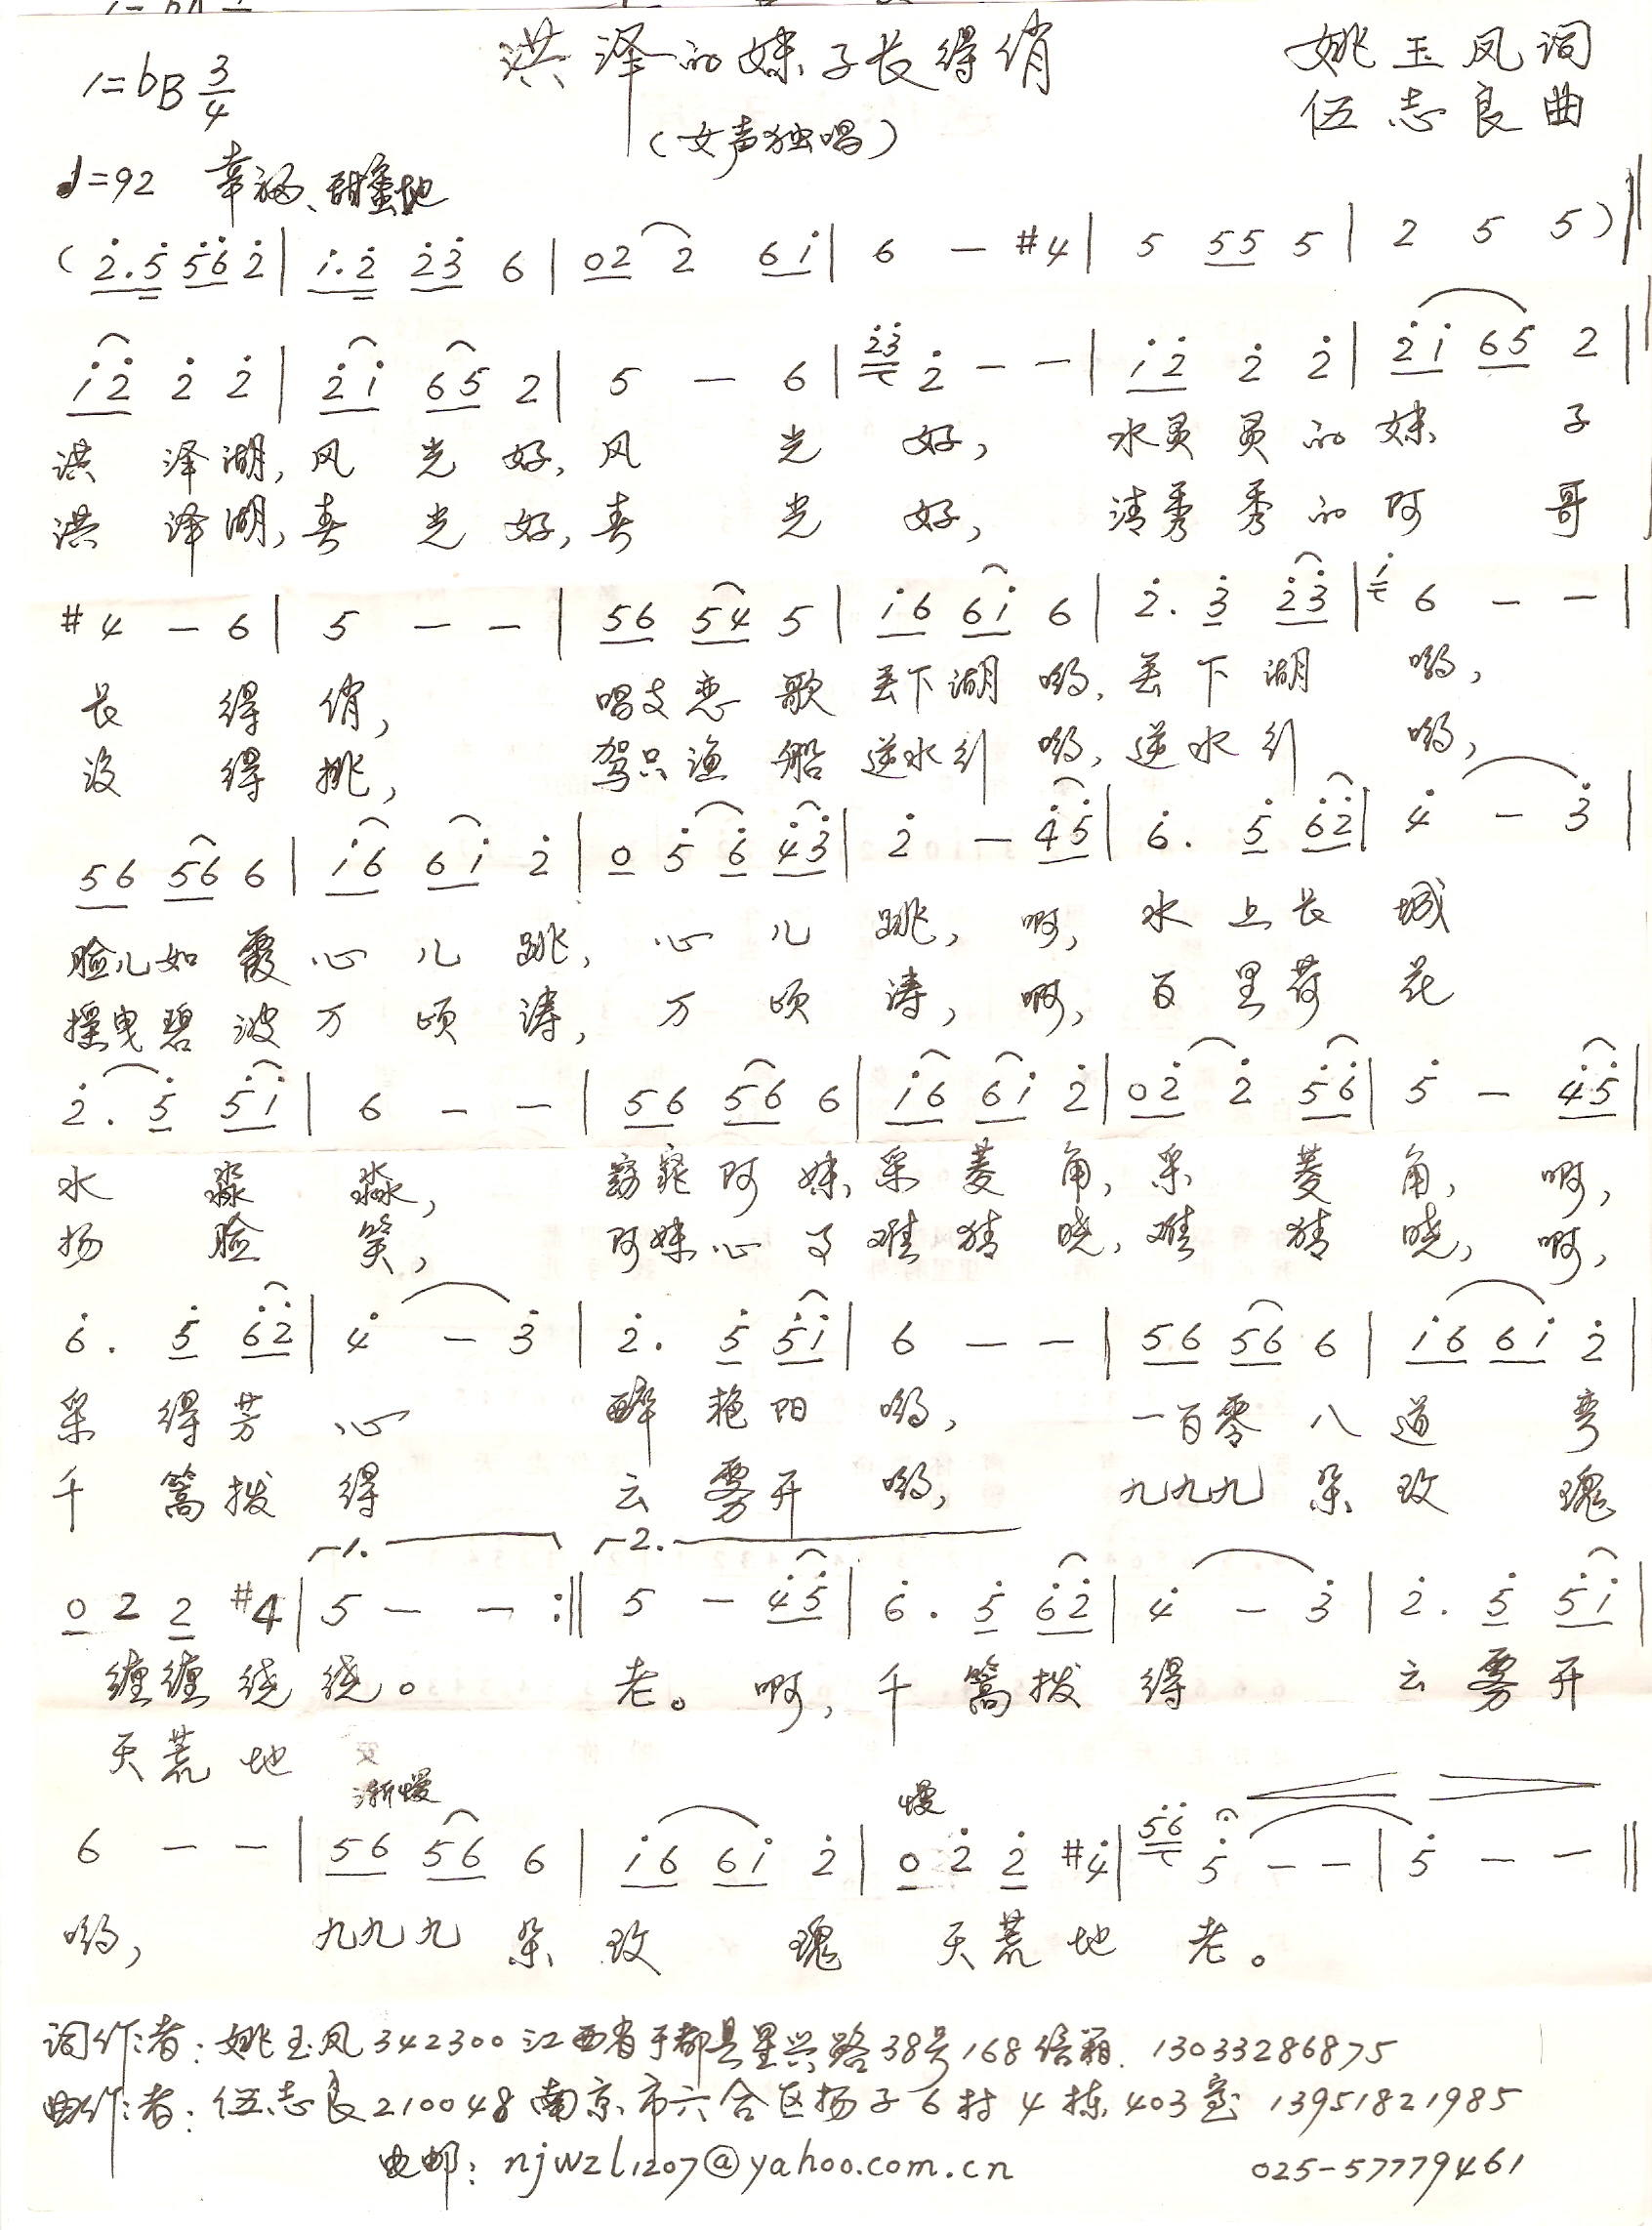 洪泽的妹子长得俏
姚玉凤词
1=bB 3/4
伍志良曲
(女声独唱)
♩=92 幸福、甜蜜地
(2̇.5̇ 5̇6̇ 2̇ | i.2̇ 2̇3̇ 6 | 02 2 6i | 6 — #4 | 5 55 5 | 2 5 5) ‖
i2̇ 2̇ 2̇ | 2̇i 65 2 | 5 — 6 | 2̇3̇ 2̇ — — | i2̇ 2̇ 2̇ | 2̇i 65 2 |
洪泽湖,风光好,风光好,水灵灵的妹子
洪泽湖,春光好,春光好,清秀秀的阿哥
#4 — 6 | 5 — — | 56 54 5 | i6 6i 6 | 2̇. 3̇ 2̇3̇ | i 6 — — |
长得俏,唱支恋歌丢下湖哟,丢下湖哟,
没得挑,驾只渔船逆水行哟,逆水行哟,
56 56 6 | i6 6i 2̇ | 0 5̇ 6̇ 4̇3̇ | 2̇ — 4̇5̇ | 6̇. 5̇ 6̇2̇ | 4̇ — 3̇ |
脸儿如霞心儿跳,心儿跳,啊,水上长城
摇曳碧波万顷涛,万顷涛,啊,百里荷花
2̇. 5̇ 5̇i | 6 — — | 56 56 6 | i6 6i 2̇ | 02̇ 2̇ 5̇6̇ | 5̇ — 4̇5̇ |
水淼淼,窈窕阿妹采菱角,采菱角,啊,
扬脸笑,阿妹心事难猜晓,难猜晓,啊,
6̇. 5̇ 6̇2̇ | 4̇ — 3̇ | 2̇. 5̇ 5̇i | 6 — — | 56 56 6 | i6 6i 2̇ |
采得芳心醉艳阳哟,一百零八道弯
千篙拨得云雾开哟,九九九朵玫瑰
1. 2.
0 2 2 #4 | 5 — — :‖ 5 — 4̇5̇ | 6̇. 5̇ 6̇2̇ | 4̇ — 3̇ | 2̇. 5̇ 5̇i |
缠缠绕绕。老。啊,千篙拨得云雾开
天荒地
渐慢 慢
6 — — | 56 56 6 | i6 6i 2̇ | 0 2̇ 2̇ #4̇ | 5̇6̇ 5̇ — — | 5̇ — — ‖
哟,九九九朵玫瑰天荒地老。
词作者:姚玉凤342300江西省于都县星兴路38号168信箱. 13033286875
曲作者:伍志良210048南京市六合区扬子6村4栋403室 13951821985
电邮:njwzl1207@yahoo.com.cn 025-57779461